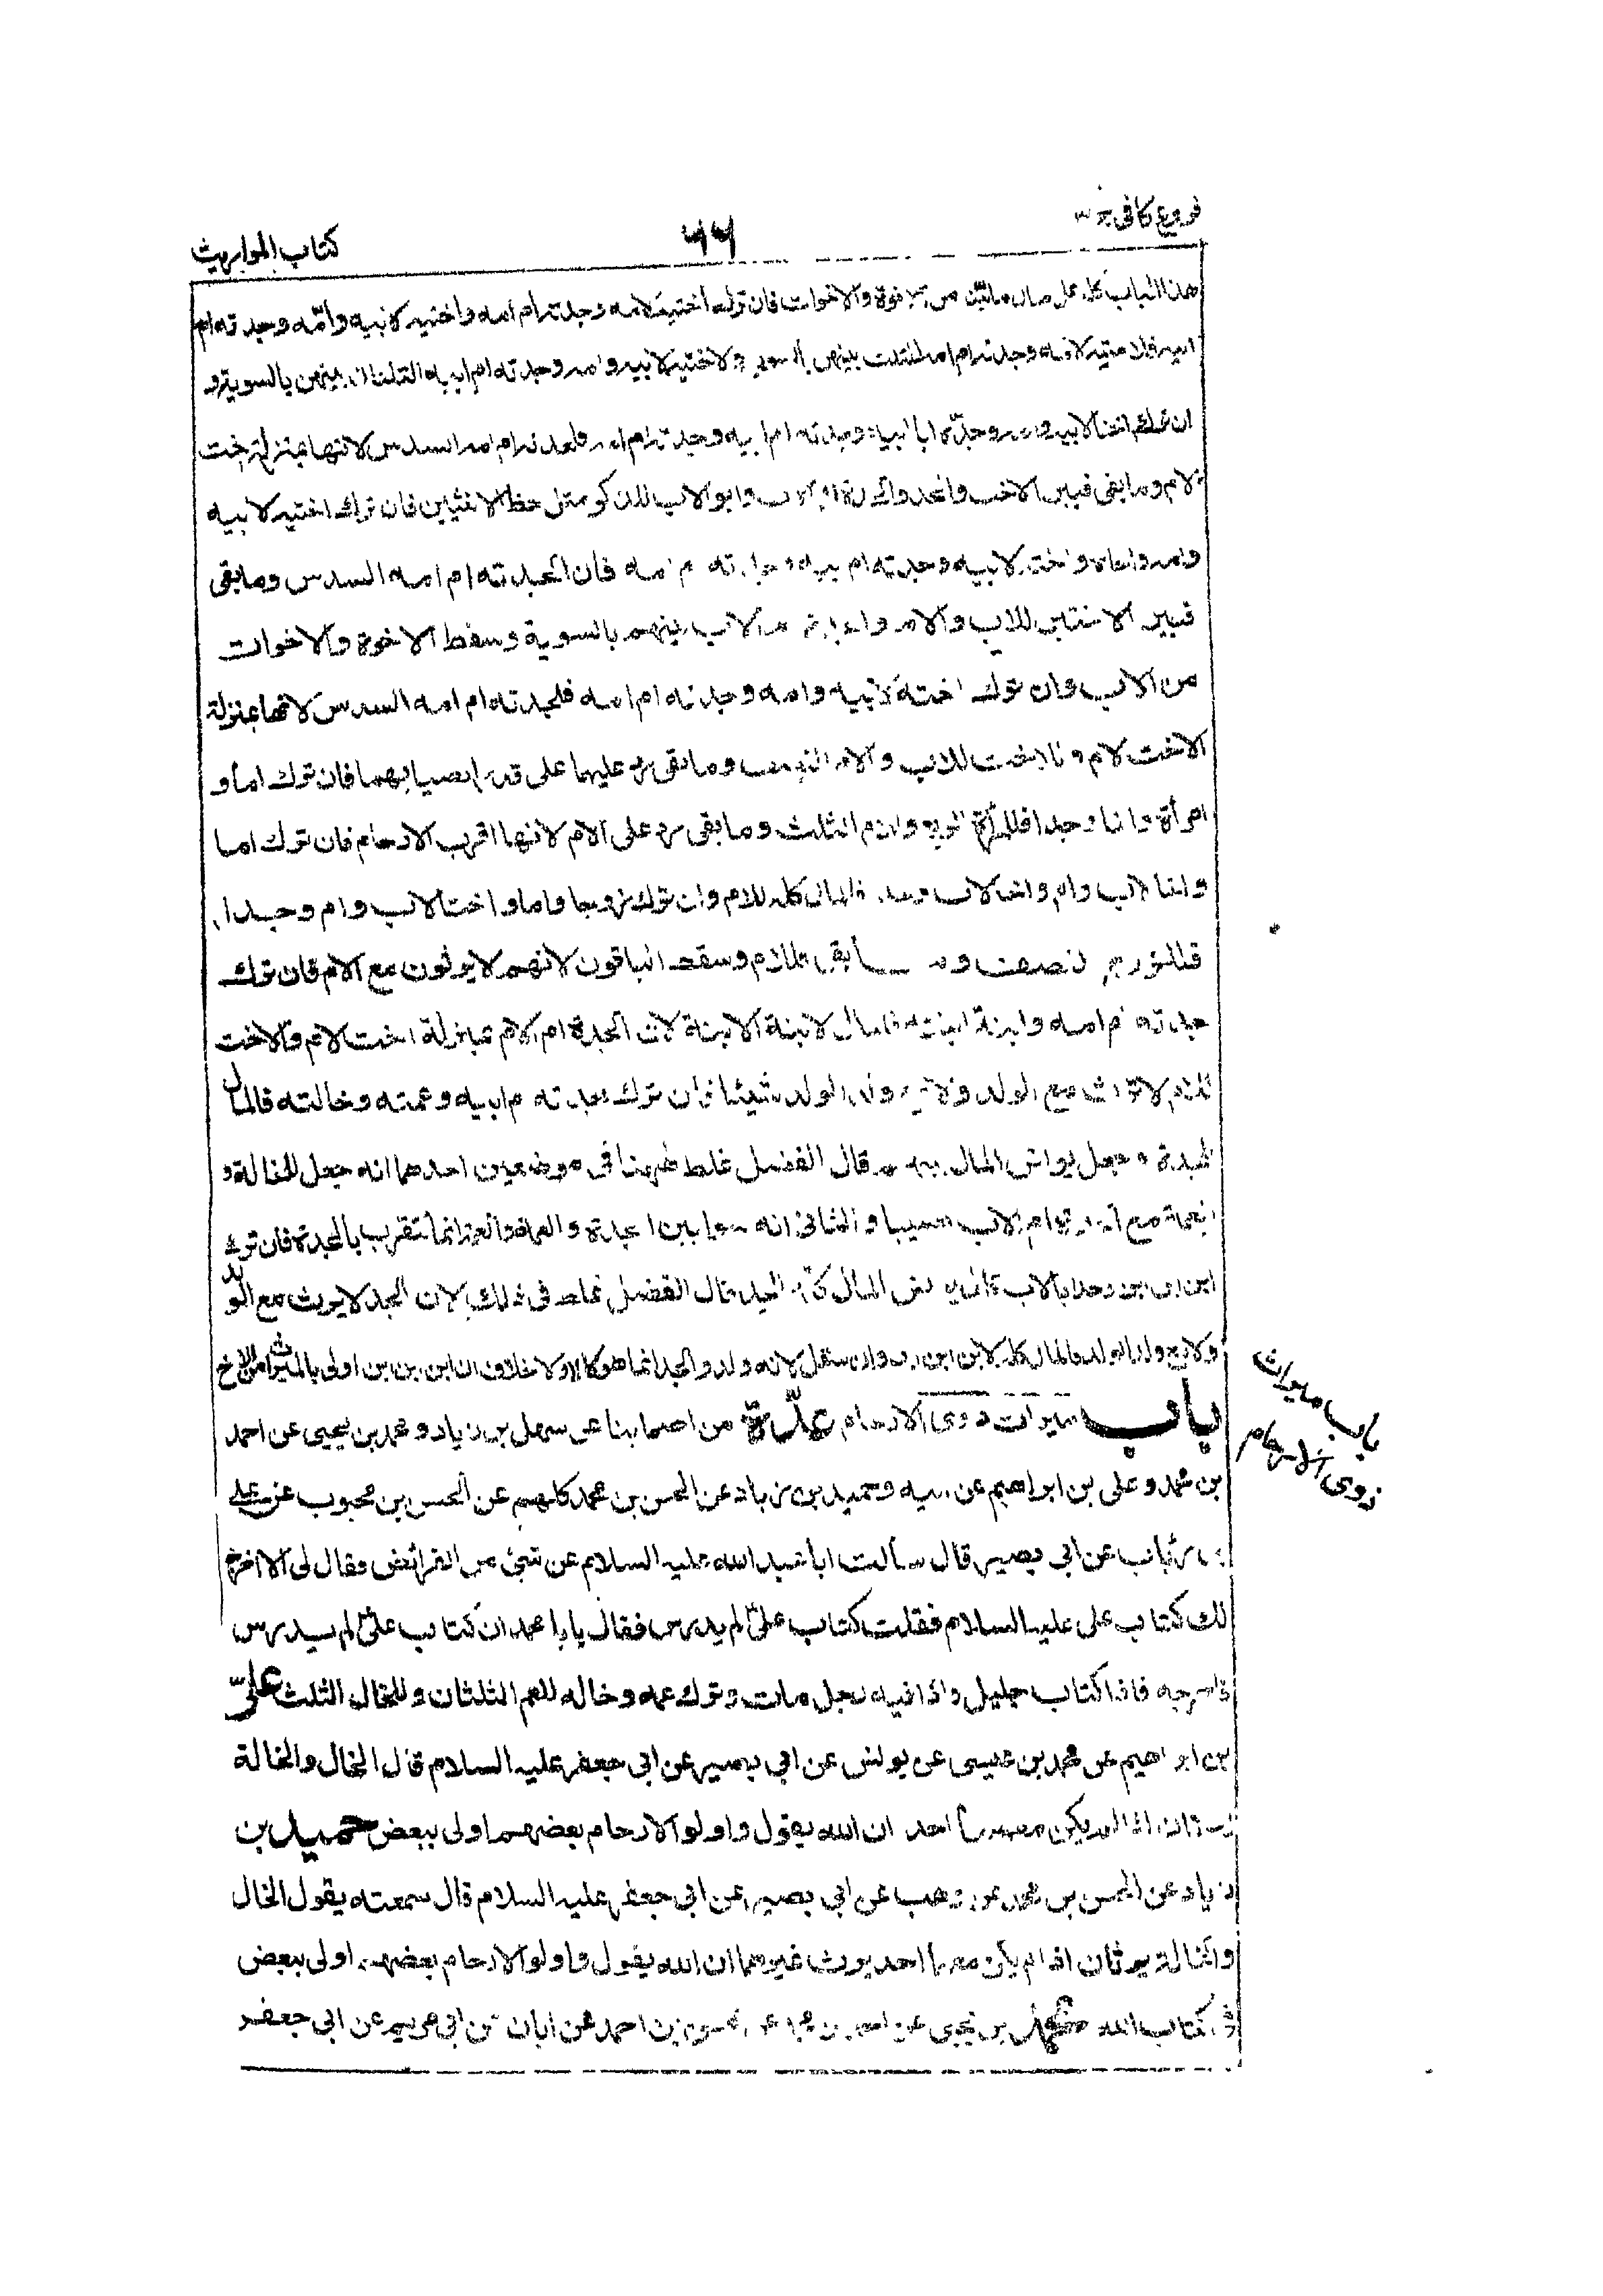 فروع كافى ج ٣
٦٦
كتاب المواريث
هذا الباب كل على مثال ما بيّن من الاخوة والاخوات فان ترك اختيه لامه وجدته ام امه واختيه لابيه وامّه وجدته ام
ابيه فلاختيه لامه وجدته ام امه الثلث بينهن بالسوية ولاختيه لابيه وامه وجدته ام ابيه الثلثان بينهن بالسوية و
ان ترك اختا لابيه وامه وجدّه ابا ابيه وجدته ام ابيه وجدته ام امه فلجدته ام امه السدس لانها بمنزلة اخت
لام وما بقى فبين الاخت والجد والجدة ام الاب وابو الاب للذكر مثل حظ الانثيين فان ترك اختيه لابيه
وامه واخاه واخته لابيه وجدته ام ابيه وجدته ام امه فان لجدته ام امه السدس وما بقى
فبين الاختين للاب والام والجدة ام الاب بينهم بالسوية وسقط الاخوة والاخوات
من الاب وان ترك اخته لابيه وامه وجدته ام امه فلجدته ام امه السدس لانها بمنزلة
الاخت لام وللاخت للاب والام النصف وما بقى رد عليهما على قدر انصبابهما فان ترك اما و
امرأة واخا وجدا فللمرأة الربع وللام الثلث وما بقى رد على الام لانها اقرب الارحام فان ترك اما
واخا لاب وام واخا لاب وجدا فالمال كله للام وان ترك زوجا واما واختا لاب وام وجدا
فللزوج النصف وما بقى فللام وسقط الباقون لانهم لا يرثون مع الام فان ترك
جدته ام امه وابنة ابنته فالمال لابنة الابنة لان الجدة ام الام بمنزلة اخت لام والاخت
للام لا ترث مع الولد ولا مع ولد الولد شيئا فان ترك جدته ام ابيه وعمته وخالته فالمال
للجدة وجعل يونس المال بينهم قال الفضل غلط ههنا فى موضعين احدهما انه جعل للخالة و
العمة مع الجدة ام الاب نصيبا والثانى انه سوا بين الجدة والعمة والعمة انما تتقرب بالجدة فان ترك
ابن ابن ابن وجدا با الاب قال يونس المال كله للجد قال الفضل غلط فى ذلك لان الجد لا يرث مع الولد
ولا مع ولد الولد فالمال كله لابن ابن ابن وان سفل لانه ولد والجد انما هو كالاخ ولا خلاف ان ابن ابن ابن اولى بالميراث من الاخ
باب ميراث ذوى الارحام عدّة من اصحابنا عن سهل بن زياد ومحمد بن يحيى عن احمد
بن محمد وعلى بن ابراهيم عن ابيه وحميد بن زياد عن الحسن بن محمد كلهم عن الحسن بن محبوب عن على
بن رئاب عن ابى بصير قال سألت ابا عبد الله عليه السلام عن شئ من الفرائض فقال لى الا اخرج
لك كتاب على عليه السلام فقلت كتاب علىّ لم يدرس فقال يا ابا محمد ان كتاب علىّ لم يدرس
فاخرجه فاذا كتاب جليل واذا فيه رجل مات وترك عمه وخاله للعم الثلثان وللخال الثلث علىّ
بن ابراهيم عن محمد بن عيسى عن يونس عن ابى بصير عن ابى جعفر عليه السلام قال الخال والخالة
يرثان اذا لم يكن معهما احد ان الله يقول واولوا الارحام بعضهم اولى ببعض حميد بن
زياد عن الحسن بن محمد عن وهب عن ابى بصير عن ابى جعفر عليه السلام قال سمعته يقول الخال
والخالة يرثان اذا لم يكن معهما احد يرث غيرهما ان الله يقول واولوا الارحام بعضهم اولى ببعض
فى كتاب الله محمد بن يحيى عن احمد بن محمد عن محسن بن احمد عن ابان عن ابى مريم عن ابى جعفر
باب ميراث
ذوى الارحام